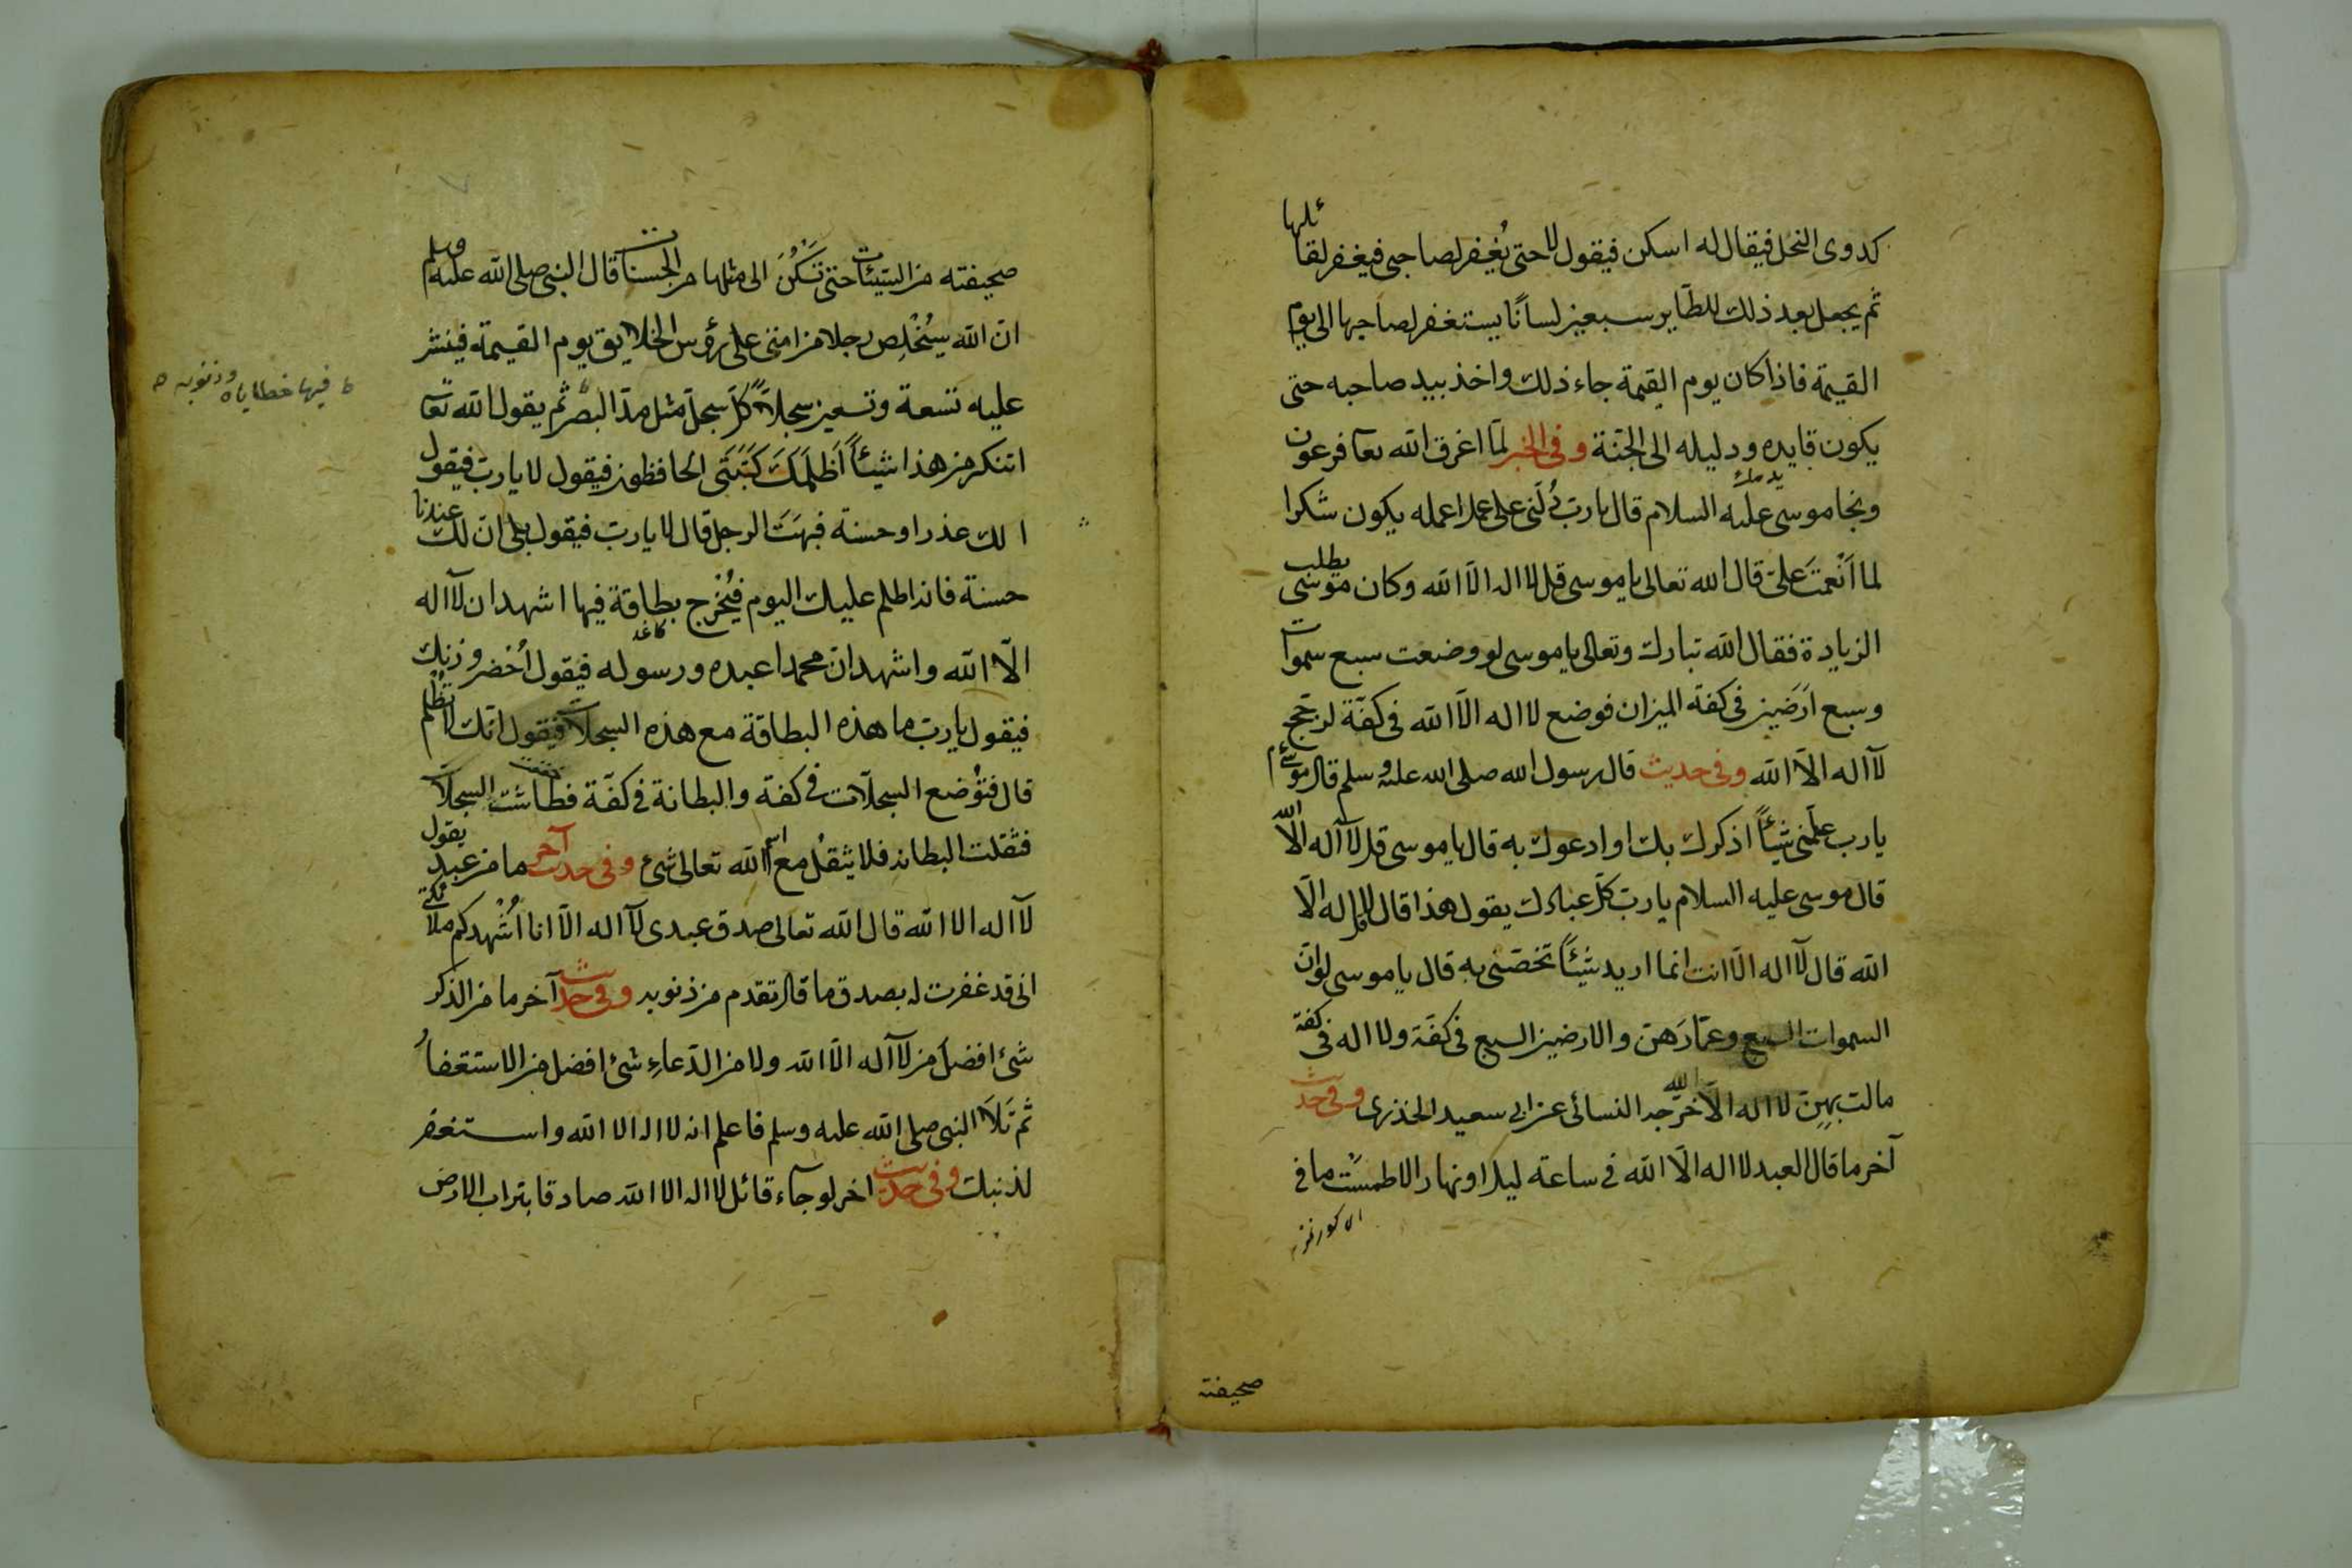 كدوى النحل فيقال له اسكن فيقول لا حتى يُغفر لصاحبى فيغفر لقائلها
ثم يجعل بعد ذلك للطّاير سبعين لسانًا يستغفر لصاحبها الى يوم
القيمة فاذا كان يوم القيمة جاء ذلك واخذ بيد صاحبه حتى
يكون قايده ودليله الى الجنّة وفى الخبر لمّا اغرق الله تعا فرعون
ونجا موسى عليه السلام قال يا ربّ دُلّنى على عمل اعمله يكون شكرا
لما اَنْعمتَ علىّ قال الله تعالى يا موسى قل لا اله الّا الله وكان موسى يطلب
الزيادة فقال الله تبارك وتعالى يا موسى لو وضعت سبع سموات
وسبع ارَضين فى كفة الميزان فوضع لا اله الّا الله فى كفّة لرجّح
لآ اله الّا الله وفى حديث قال رسول الله صلى الله عليه وسلم قال موسى عم
يا رب علّمنى شيئاً اذكرك بك او ادعوك به قال يا موسى قل لآ آله الّا الله
قال موسى عليه السلام يا ربّ كلّ عبادك يقول هذا قال قل لا اله الّا
الله قال لآ اله الّا انت انما اريد شيئاً تخصّنى به قال يا موسى لو انّ
السموات السبع وعمّارَهنّ والارضين السبع فى كفّة ولا اله فى كفة
مالت بهنّ لا اله الّا الله خرّجه النسائى عن ابى سعيد الخذرى وفى حديث
آخر ما قال العبد لا اله الّا الله فى ساعة ليلا او نهار الا طمسَت ما فى
صحيفته
صحيفته من السّيئات حتى تَسكُنَ الى مثلها من الحسنات قال النبى صلى الله عليه وسلم
انّ الله سيُخْلِص رجلا من امتى على رؤس الخلايق يوم القيمة فينشر
عليه تسعة وتسعين سجلاًّ كلّ سجلّ مثل مدّ البصر ثم يقول الله تعآ
ط فيها خطاياه وذنوبه ه
اتنكر من هذا شيئاً اَظلمَكَ كَتَبَتَى الحافظون فيقول لا يا ربّ فيقول
ا لك عذر او حسنة فبهتَ الرجل قال لا يا ربّ فيقول بلى انّ لك عندنا
حسنة فانه لا ظلم عليك اليوم فيُخرج بطاقة فيها اشهد ان لآ اله
كاغد
الّا الله واشهد انّ محمدا عبده ورسوله فيقول اُحضر وزنك
فيقول يا ربّ ما هذه البطاقة مع هذه السجلّات فيقول انّك لا تُظلم
قال فتوُضع السجلّات فى كفّة والبطاقة فى كفّة فطاشت السجلّات
فثقلت البطاقه فلا يثقُل مع اسم الله تعالى شئ وفى حديث آخر ما من عبد يقول
لآ اله الا الله قال الله تعالى صدق عبدى لآ اله الّا انا اُشْهدكم ملائكتى
انى قد غفرت له بصدق ما قال تقدم من ذنوبه وفى حديث آخر ما من الذكر
شئ افضل من لآ آله الّا الله ولا من الدّعاءِ شئ افضل من الاستغفارُ
ثم تَلَا النبى صلى الله عليه وسلم فاعلم انه لا اله الا الله واستغفر
لذنبك وفى حديث اخر لو جاء قائل لا اله الا الله صادقا بتراب الارض